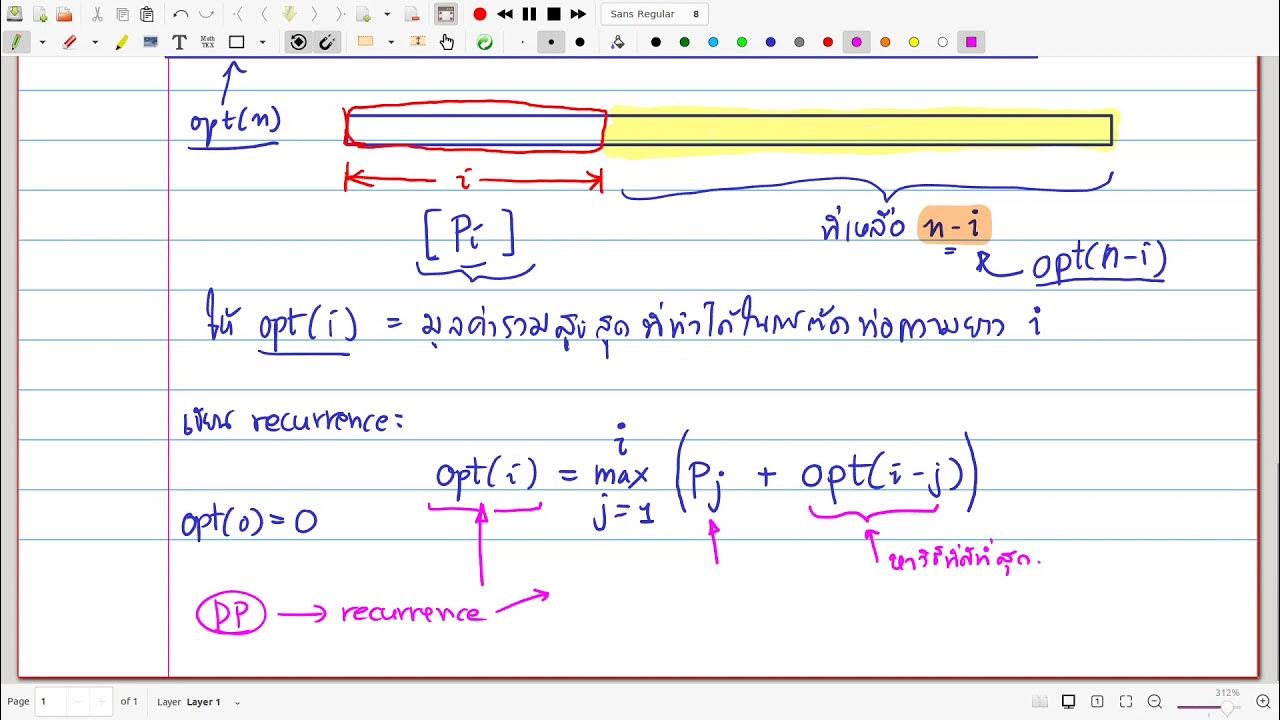 Sans Regular 8
T Math TEX
opt(n)
i
[Pi]
ที่เหลือ n-i
= opt(n-i)
ให้ opt(i) = มูลค่ารวมสูงสุดที่ทำได้ในการตัดท่อความยาว i
เขียน recurrence:
opt(i) = max (Pj + opt(i-j))
i
j=1
opt(0)=0
หาวิธีที่ดีที่สุด.
DP → recurrence
Page 1 of 1 Layer Layer 1
312%
1